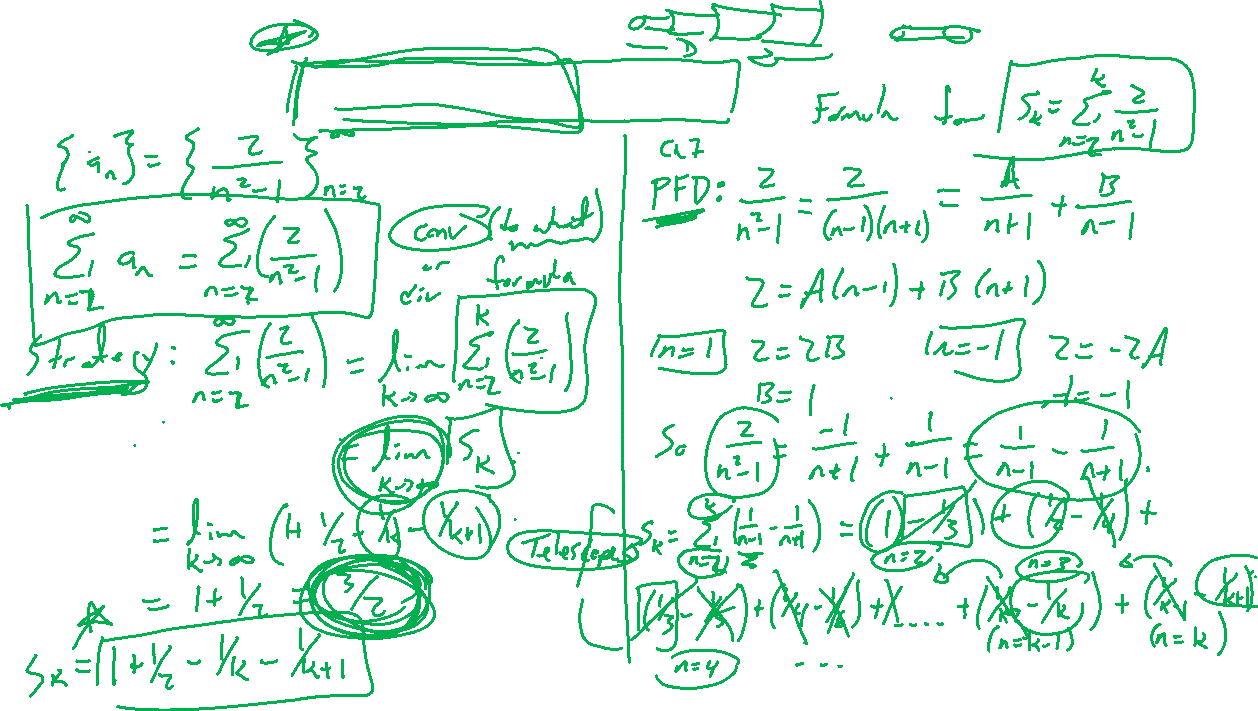 {a_n} = {2/(n²-1)}_{n=2}^∞
∞∑n=2 a_n = ∞∑n=2 (2/(n²-1)) conv (to what) or div
formula
Strategy: ∞∑n=2 (2/(n²-1)) = lim k→∞ k∑n=2 (2/(n²-1))
= lim k→∞ S_k
= lim k→∞ (1+ 1/2 - 1/k - 1/k+1)
= 1 + 1/2 = 3/2
S_k = 1 + 1/2 - 1/k - 1/k+1
Formula for S_k = k∑n=2 2/(n²-1)
PFD: 2/(n²-1) = 2/((n-1)(n+1)) = A/(n+1) + B/(n-1)
2 = A(n-1) + B(n+1)
n=1 2=2B n=-1 2=-2A
B=1 A=-1
So 2/(n²-1) = -1/(n+1) + 1/(n-1) = 1/(n-1) - 1/(n+1).
Telescopes S_k = k∑n=2 (1/(n-1) - 1/(n+1)) = (1 - 1/3) + (1/2 - 1/4) +
n=2 n=3
(1/3 - 1/5) + (1/4 - 1/6) + .... + ( - 1/k) + (1/k - 1/k+1)
n=4 ... (n=k-1) (n=k)